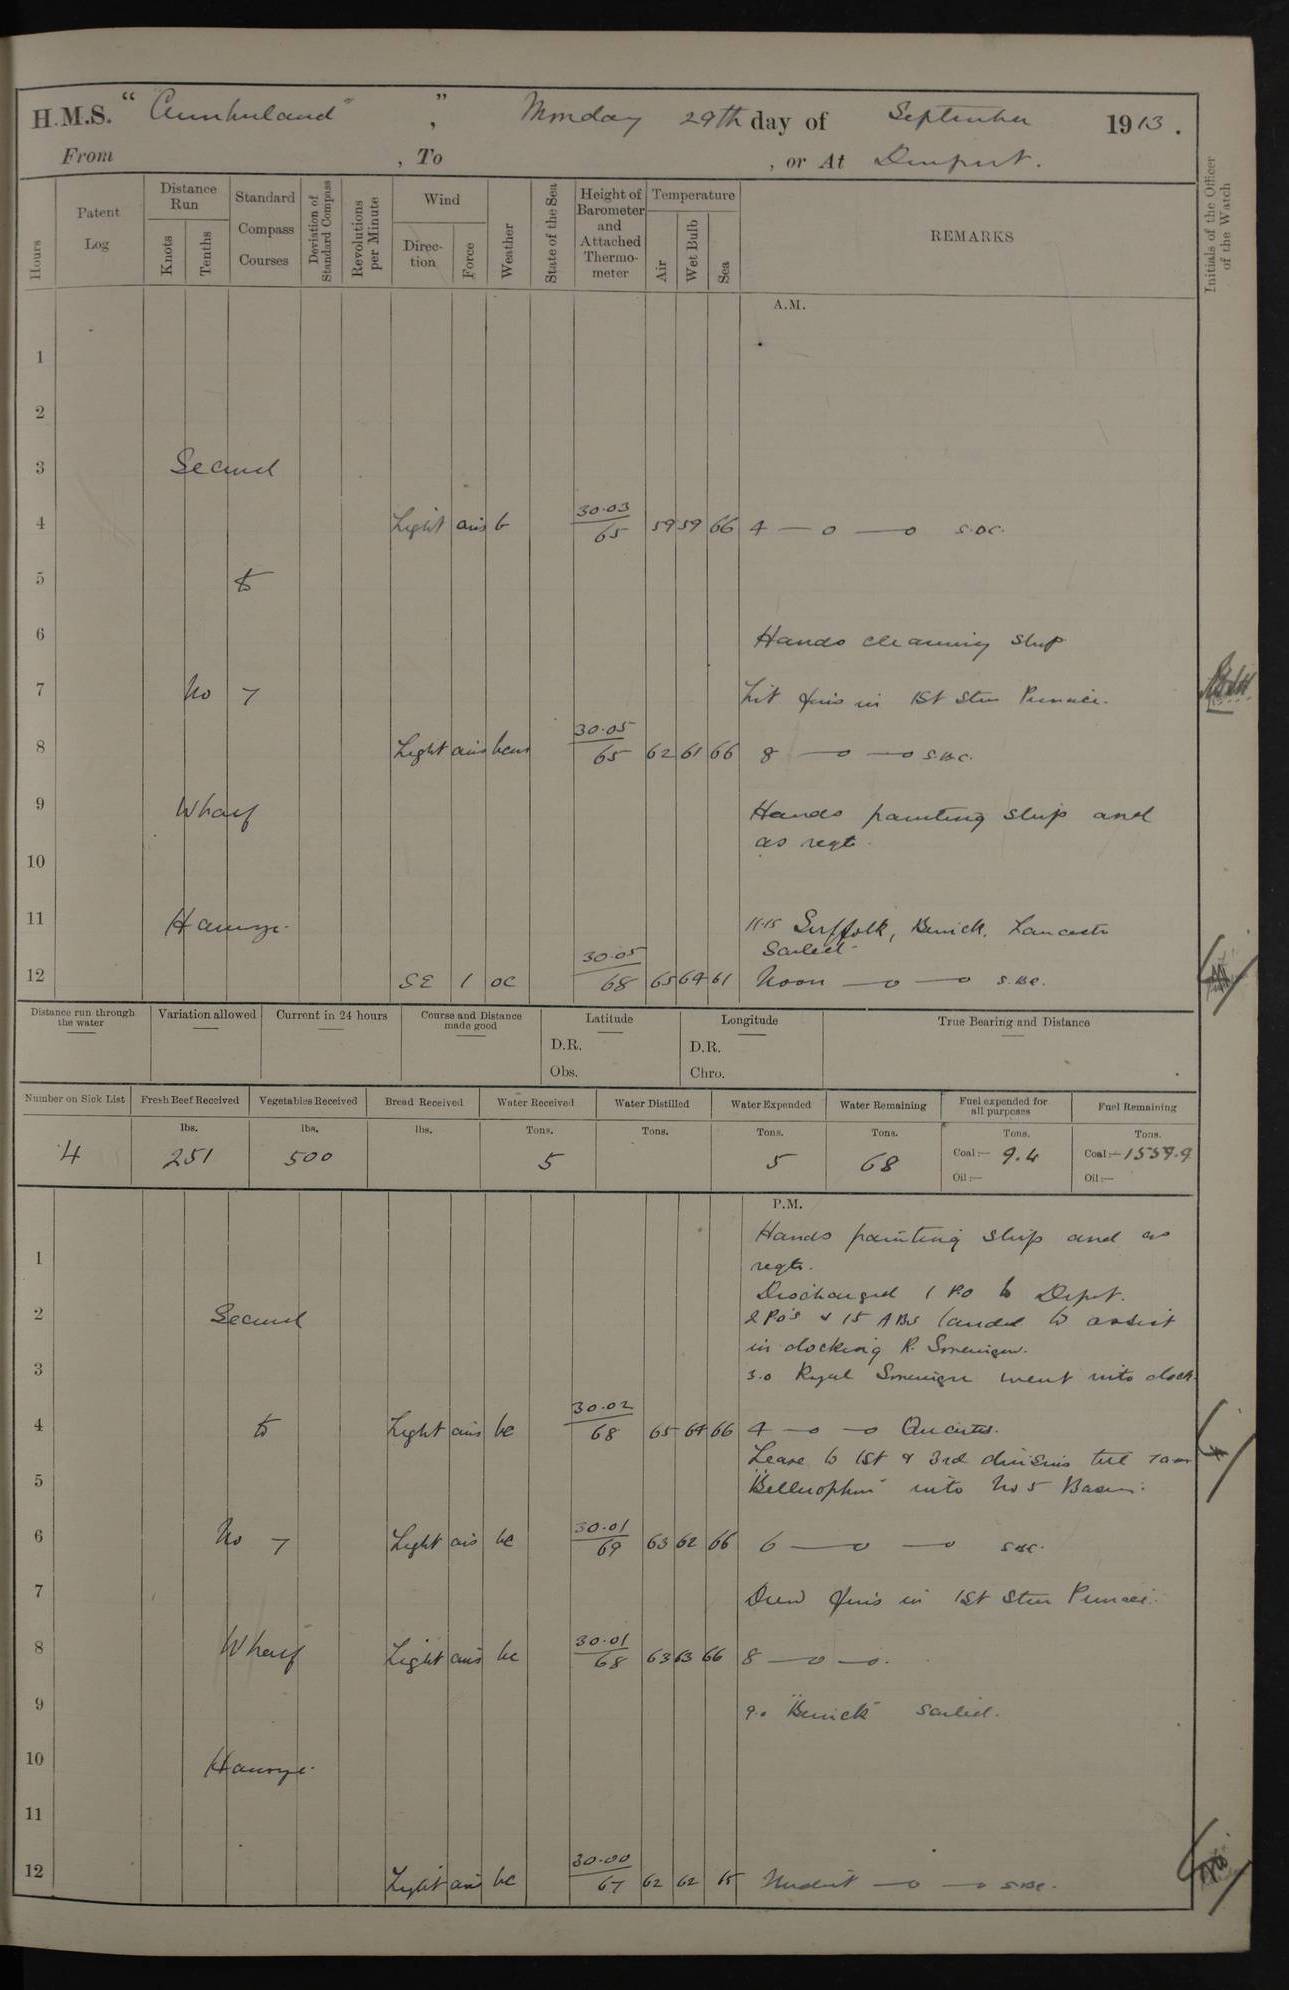 H.M.S. "Cumberland", Monday 29th day of September 1913.
From , To , or At Devonport.
Hours
Patent Log
Distance Run
Knots
Tenths
Standard Compass Courses
Deviation of Standard Compass
Revolutions per Minute
Wind
Direction
Force
Weather
State of the Sea
Height of Barometer and Attached Thermometer
Temperature
Air
Wet Bulb
Sea
REMARKS
Initials of the Officer of the Watch
A.M.
1
2
3 Secured
4 Light airs b 30.03 65 59 59 66 4 —o —o
5 to
6 Hands cleaning ship
7 No 7 Lit fires in 1st Stm Pinnace.
8 Light airs 30.05 65 62 61 66 8 —o —o S.B.C.
9 Wharf Hands painting ship and
as reqte.
10
11 Hamoaze. 11.15 Suffolk, Berwick, Lancaster
Sailed.
12 SE 1 oc 30.05 68 65 64 61 Noon —o —o S.B.C.
Distance run through the water
Variation allowed
Current in 24 hours
Course and Distance made good
Latitude
D.R.
Obs.
Longitude
D.R.
Chro.
True Bearing and Distance
Number on Sick List
Fresh Beef Received
Vegetables Received
Bread Received
Water Received
Water Distilled
Water Expended
Water Remaining
Fuel expended for all purposes
Fuel Remaining
4
lbs. 251
lbs. 500
lbs.
Tons. 5
Tons.
Tons. 5
Tons. 68
Tons. Coal:— 9.4 Oil:—
Tons. Coal:— 1559.9 Oil:—
P.M.
Hands painting ship and as
1 reqte.
Discharged 1 P.O to Depot.
2 Secured 2 PO's & 15 ABs landed to assist
in docking R. Sovereign.
3 3.0 Royal Sovereign went into dock.
4 to Light airs bc 30.02 68 65 64 66 4 —o —o Quarters.
Leave to 1st & 3rd divisions till 7 am
5 "Bellerophon" into No 5 Basin.
6 No 7 Light airs bc 30.01 69 63 62 66 6 —o —o SBC.
7 Drew fires in 1st Stm Pinnace.
8 Wharf Light airs bc 30.01 68 63 63 66 8 —o —o.
9 9.0 "Berwick" sailed.
10 Hamoaze.
11
12 Light airs bc 30.00 67 62 62 65 Midnt —o —o SBC.